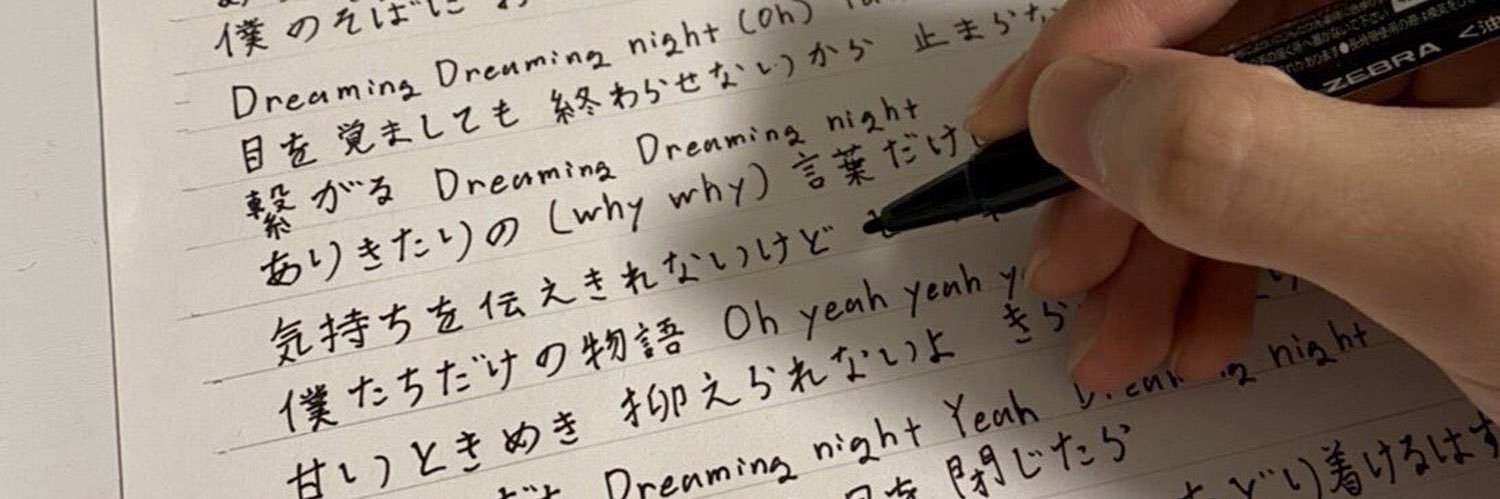 僕のそばに
Dreaming Dreaming night (oh)
目を覚ましても 終わらせないから 止まらな
繋がる Dreaming Dreaming night
ありきたりの (why why) 言葉だけ
気持ちを伝えきれないけど
僕たちだけの物語 Oh yeah yeah
甘いときめき 抑えられないよ きら
Dreaming night Yeah Dreaming night
目を閉じたら
どり着けるはず
ZEBRA <油